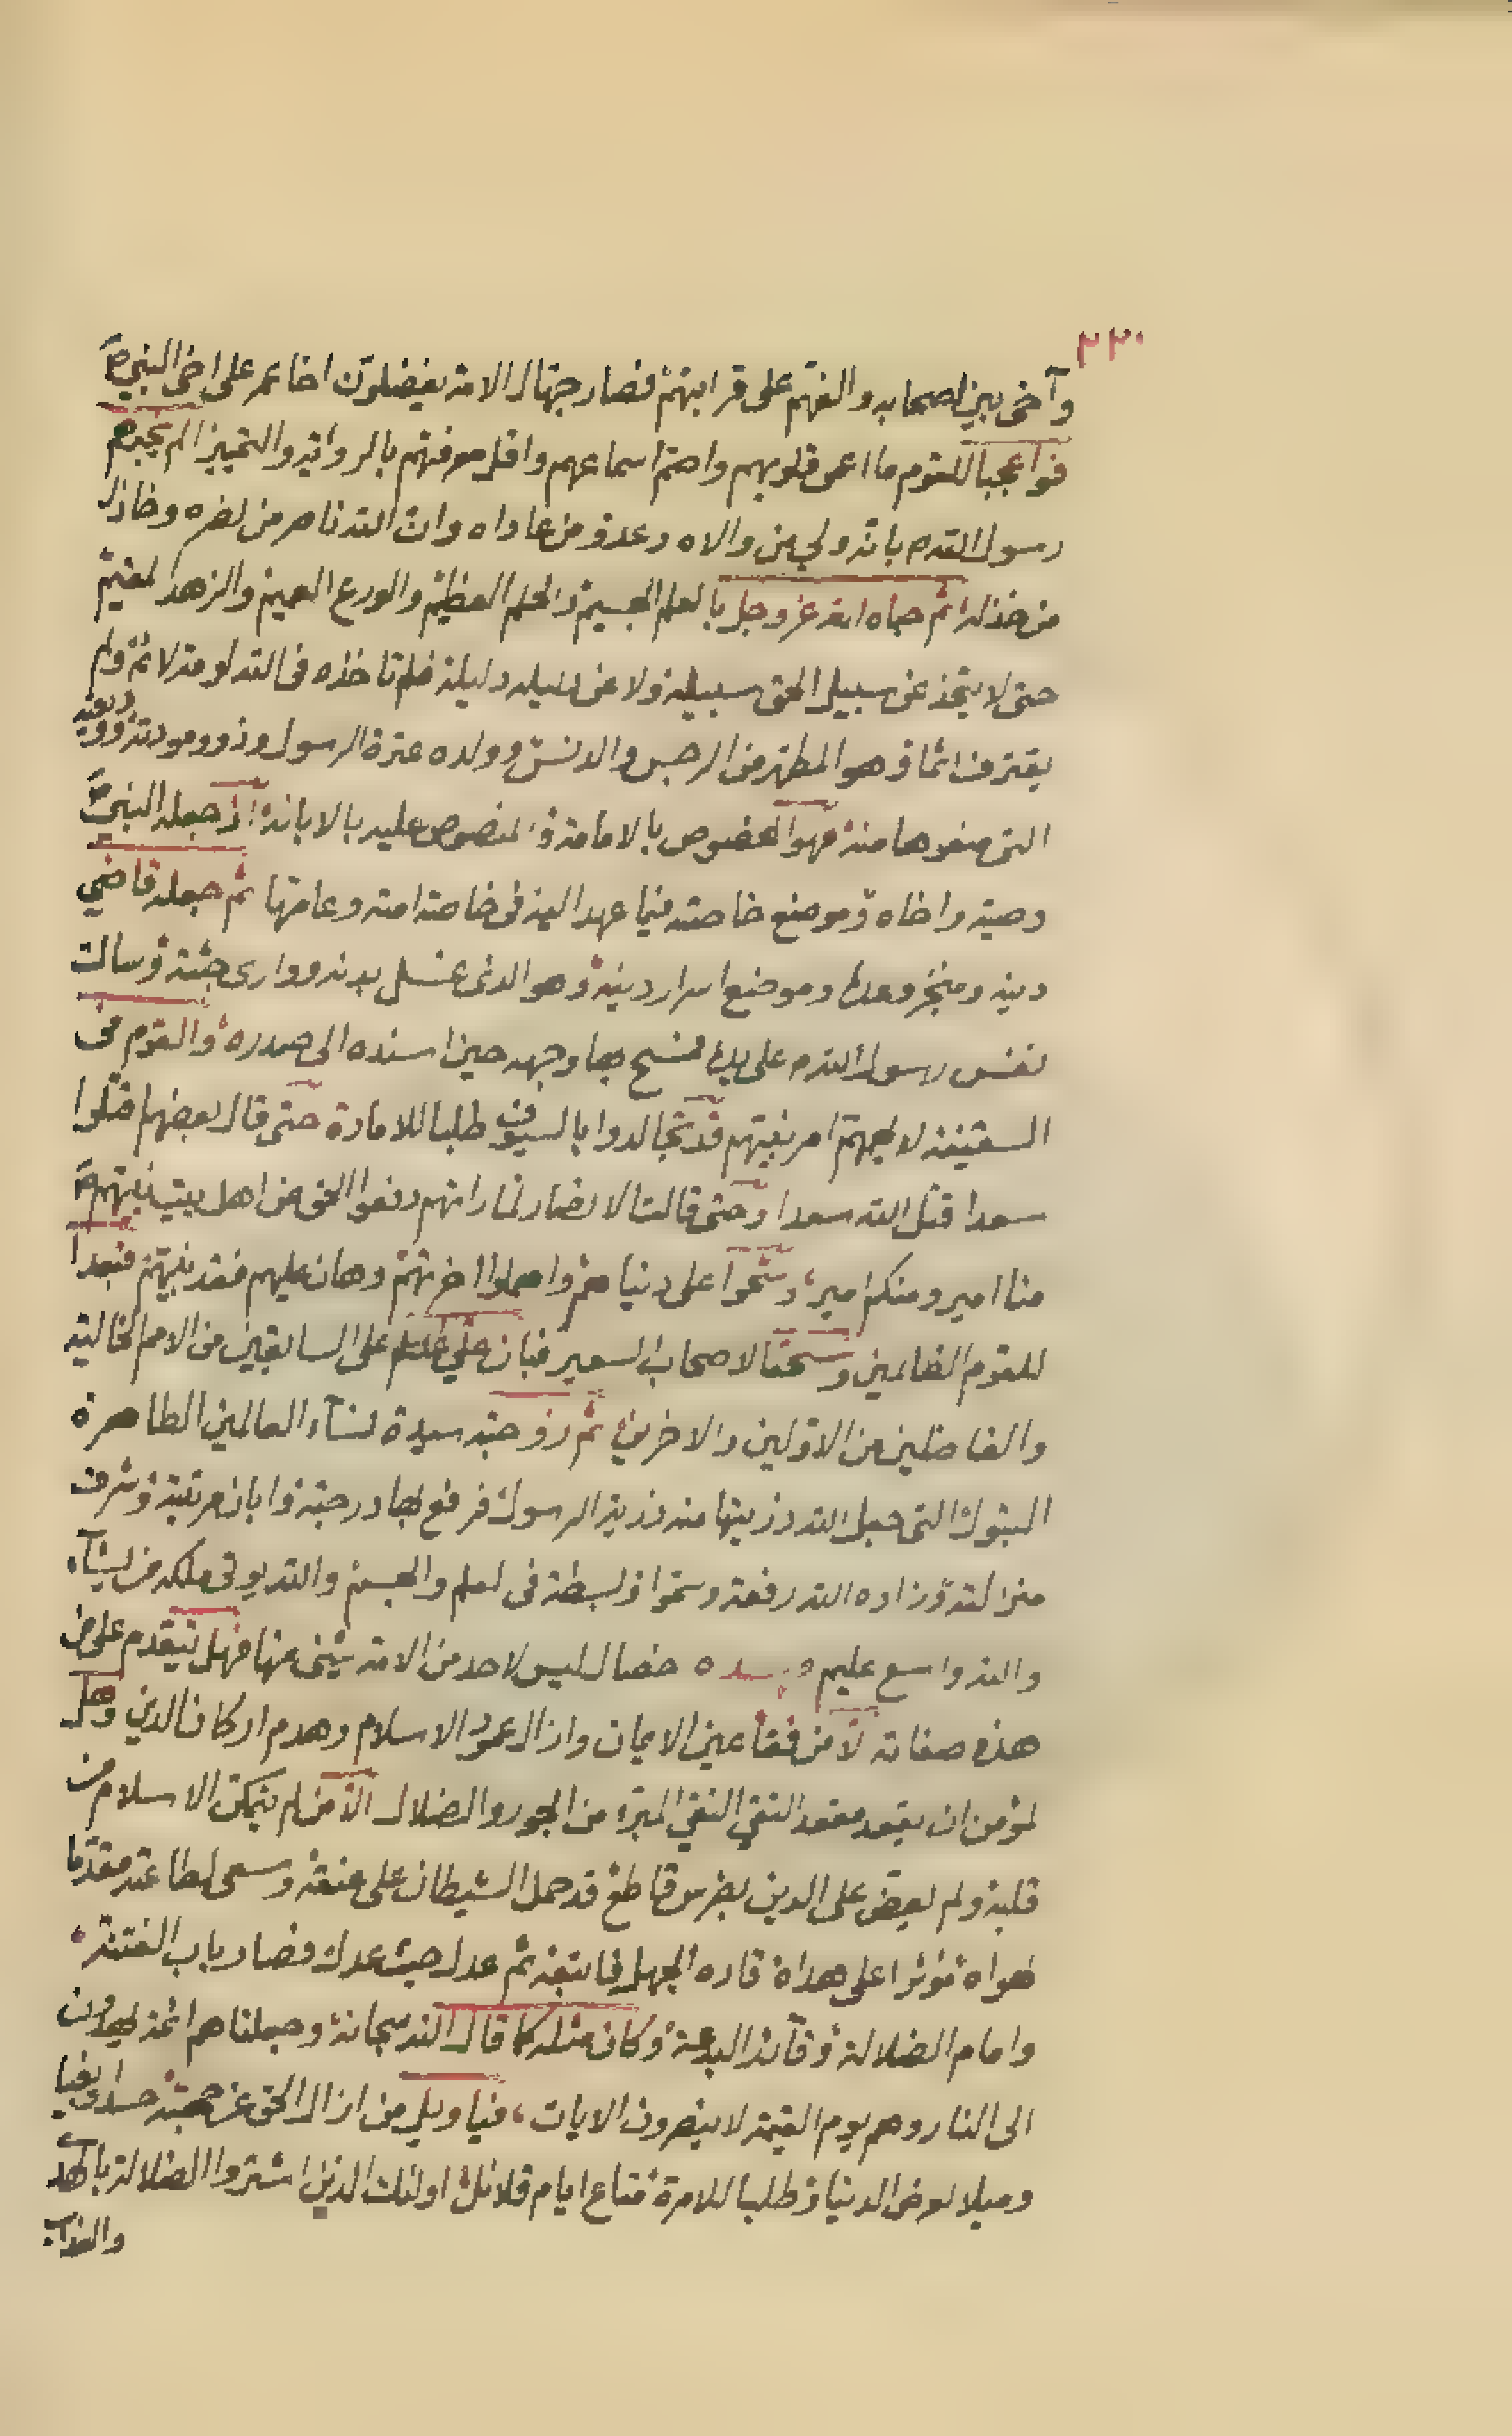 ٢٣٠
وآخى بين اصحابه والفهم على قرابتهم فصار جهال الامة يفضلون اخا عمر على اخى النبى ص
فوا عجبا للقوم ما اعمى قلوبهم واصم اسماعهم واقل معرفتهم بالرواية والتمييز الم يخبرهم
رسول الله ص بانه ولى من والاه وعدو من عاداه وان الله ناصر من نصره وخاذل
من خذله ثم حباه الله عز وجل بالعلم الجسيم والحلم العظيم والورع والزهد
حتى لا يتخذ غير سبيل الحق سبيلا ولا غير دليله دليلا فلم تاخذه فى الله لومة لائم ولم
يقترف اثما وهو المطهر من الرجس والدنس وولده عترة الرسول وذوو مودته
التى منعوها منه فهو المخصوص بالامامة والمنصوص عليه بالابانة اذ جعله النبى ص
وصيه واخاه وموضع خاصته فيما عهد اليه فى خاصة امته وعامتها ثم جعله قاضى
دينه ومنجز وعده وموضع اسرار دينه وهو الذى غسل بدنه ووارى جثته وسالت
نفس رسول الله ص على يده فمسح بها وجهه حين اسنده الى صدره والقوم فى
السقيفة قد تجالدوا بالسيوف طلبا للامارة حتى قال بعضهم اقتلوا
سعدا قتل الله سعدا وحتى قالت الانصار لما راتهم دفعوا الحق عن اهل بيت نبيهم ص
منا امير ومنكم امير، وشحوا على دنياهم واهملوا اخرتهم وهان عليهم فقد نبيهم فبعدا
للقوم الظالمين وسحقا لاصحاب السعير فبان على على السابقين من الامم الخالية
والفاضلين من الاولين والاخرين ثم زوجته سيدة نساء العالمين الطاهرة
البتول التى جعل الله ذريتها منه ذرية الرسول فرفع بها درجته وابان مرتبته وشرف
منزلته وزاده الله رفعة وبسطة فى العلم والجسم والله يوتى ملكه من يشآء
والله واسع عليم خصال ليس لاحد من الامة شىء منها فهل يتقدم على من
هذه صفاته الا من فقا عين الايمان وازال عمود الاسلام وهدم اركان الدين وهل
لمؤمن ان يقعد مقعد التقى النقى المبرء من الجور والضلال الا من لم يتمكن الاسلام من
قلبه ولم يعض على الدين بضرس قاطع قد حمل الشيطان على عنقه وسعى لطاعته مقدما
لهواه مؤثرا على هداه قاده الجهل فاتبعه ثم عدل حيث عدل فصار باب الفتنة
وامام الضلالة وقآئد البدعة وكان مثله كما قال الله سبحانه وجعلناهم ائمة يهدون
الى النار وهم يوم القيمة لا ينصرون الايات، فيا ويل من ازال الحق عن جهته حسدا وبغيا
وميلا لعرض الدنيا وطلبا للامرة متاع ايام قلائل اولئك الذين اشتروا الضلالة بالهدى
والعذاب